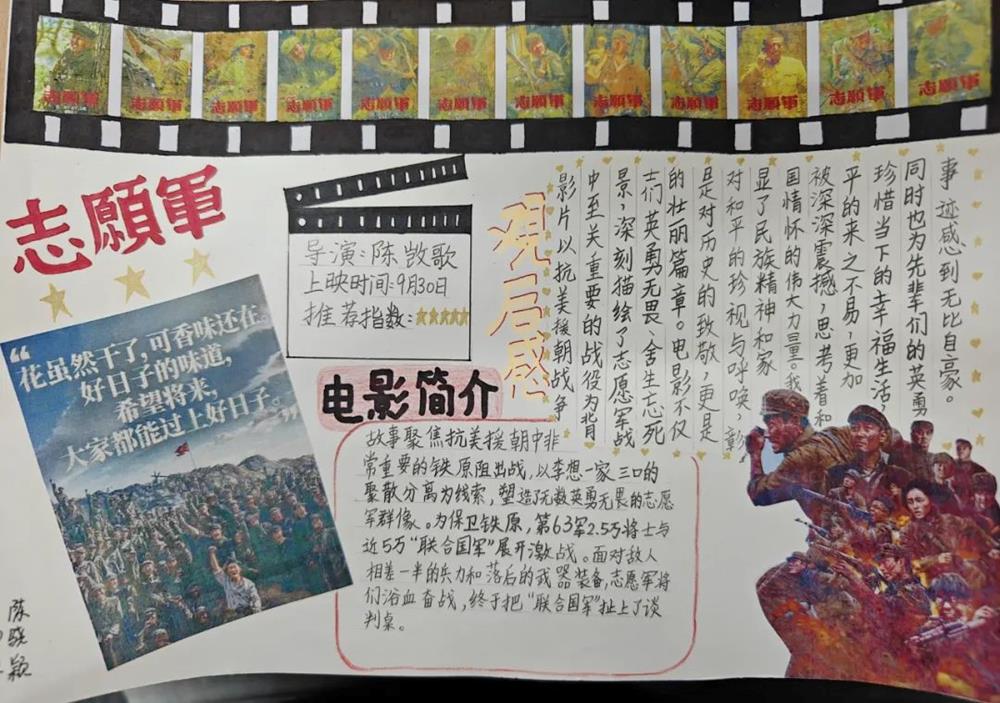 志願軍
志願軍
志願軍
志願軍
志願軍
志願軍
志願軍
志願軍
志願軍
志願軍
志願軍
志願軍
志願軍
“花虽然干了,可香味还在。
好日子的味道,
希望将来,
大家都能过上好日子。”
导演:陈凯歌
上映时间:9月30日
推荐指数:★★★★★
电影简介
故事聚焦抗美援朝中非
常重要的铁原阻击战,以李想一家三口的
聚散分离为线索,塑造了无数英勇无畏的志愿
军群像。为保卫铁原,第63军2.5万将士与
近5万“联合国军”展开激战。面对敌人
相差一半的兵力和落后的武器装备,志愿军将
们浴血奋战,终于把“联合国军”扯上了谈
判桌。
观后感
影片以抗美援朝战争
中至关重要的战役为背
景,深刻描绘了志愿军战
士们英勇无畏、舍生忘死
的壮丽篇章。电影不仅
是对历史的致敬,更是
对和平的珍视与呼唤,彰
显了民族精神和家
国情怀的伟大力量。我
被深深震撼,思考着和
平的来之不易,更加
珍惜当下的幸福生活,
同时也为先辈们的英勇
事迹感到无比自豪。
陈晓颖